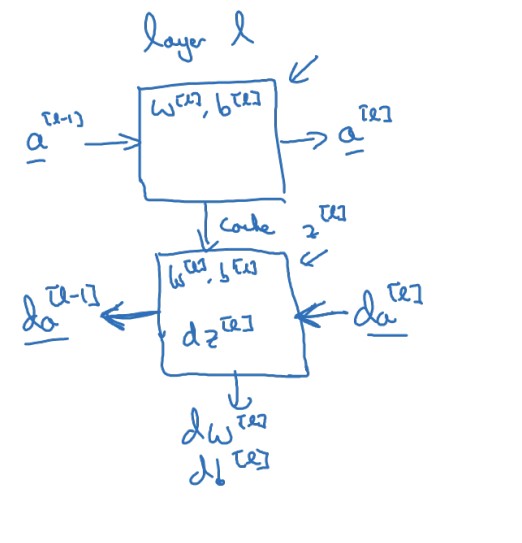 layer l
w^[l], b^[l]
a^[l-1]
a^[l]
cache z^[l]
w^[l], b^[l]
da^[l-1]
da^[l]
dz^[l]
dw^[l]
db^[l]